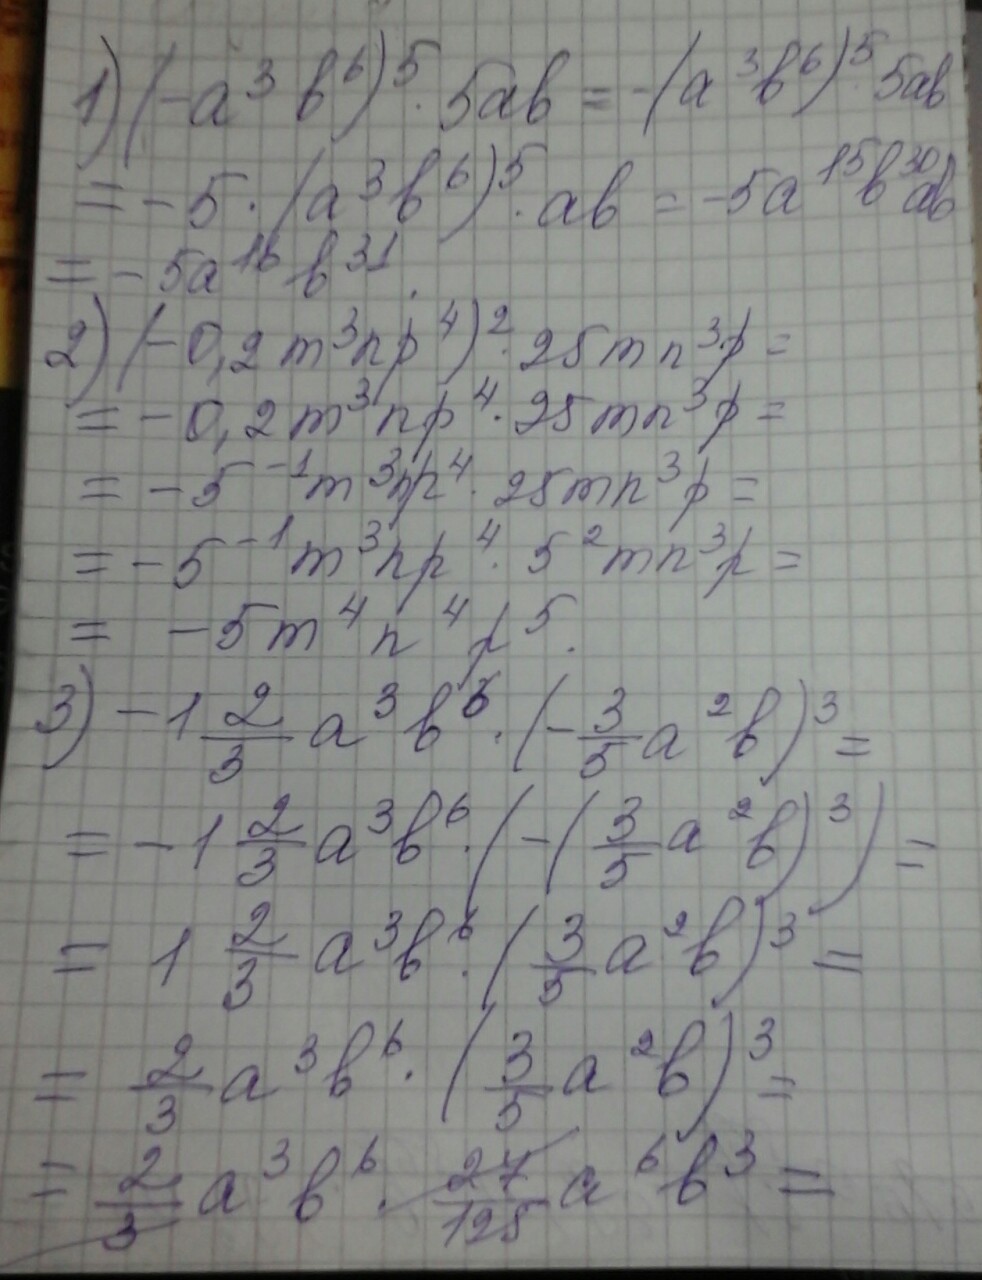 1) (-a³b⁶)⁵ · 5ab = -(a³b⁶)⁵ 5ab
= -5 · (a³b⁶)⁵ · ab = -5a¹⁵b³⁰ab
= -5a¹⁶b³¹.
2) (-0,2m³np⁴)² · 25mn³p =
= -0,2m³np⁴ · 25mn³p =
= -5⁻¹m³np⁴ · 25mn³p =
= -5⁻¹m³np⁴ · 5²mn³p =
= -5m⁴n⁴p⁵.
3) -1 2/3 a³b⁶ · (-3/5 a²b)³ =
= -1 2/3 a³b⁶ · (-(3/5 a²b)³) =
= 1 2/3 a³b⁶ · (3/5 a²b)³ =
= 2/3 a³b⁶ · (3/5 a²b)³ =
= 2/3 a³b⁶ · 27/125 a⁶b³ =